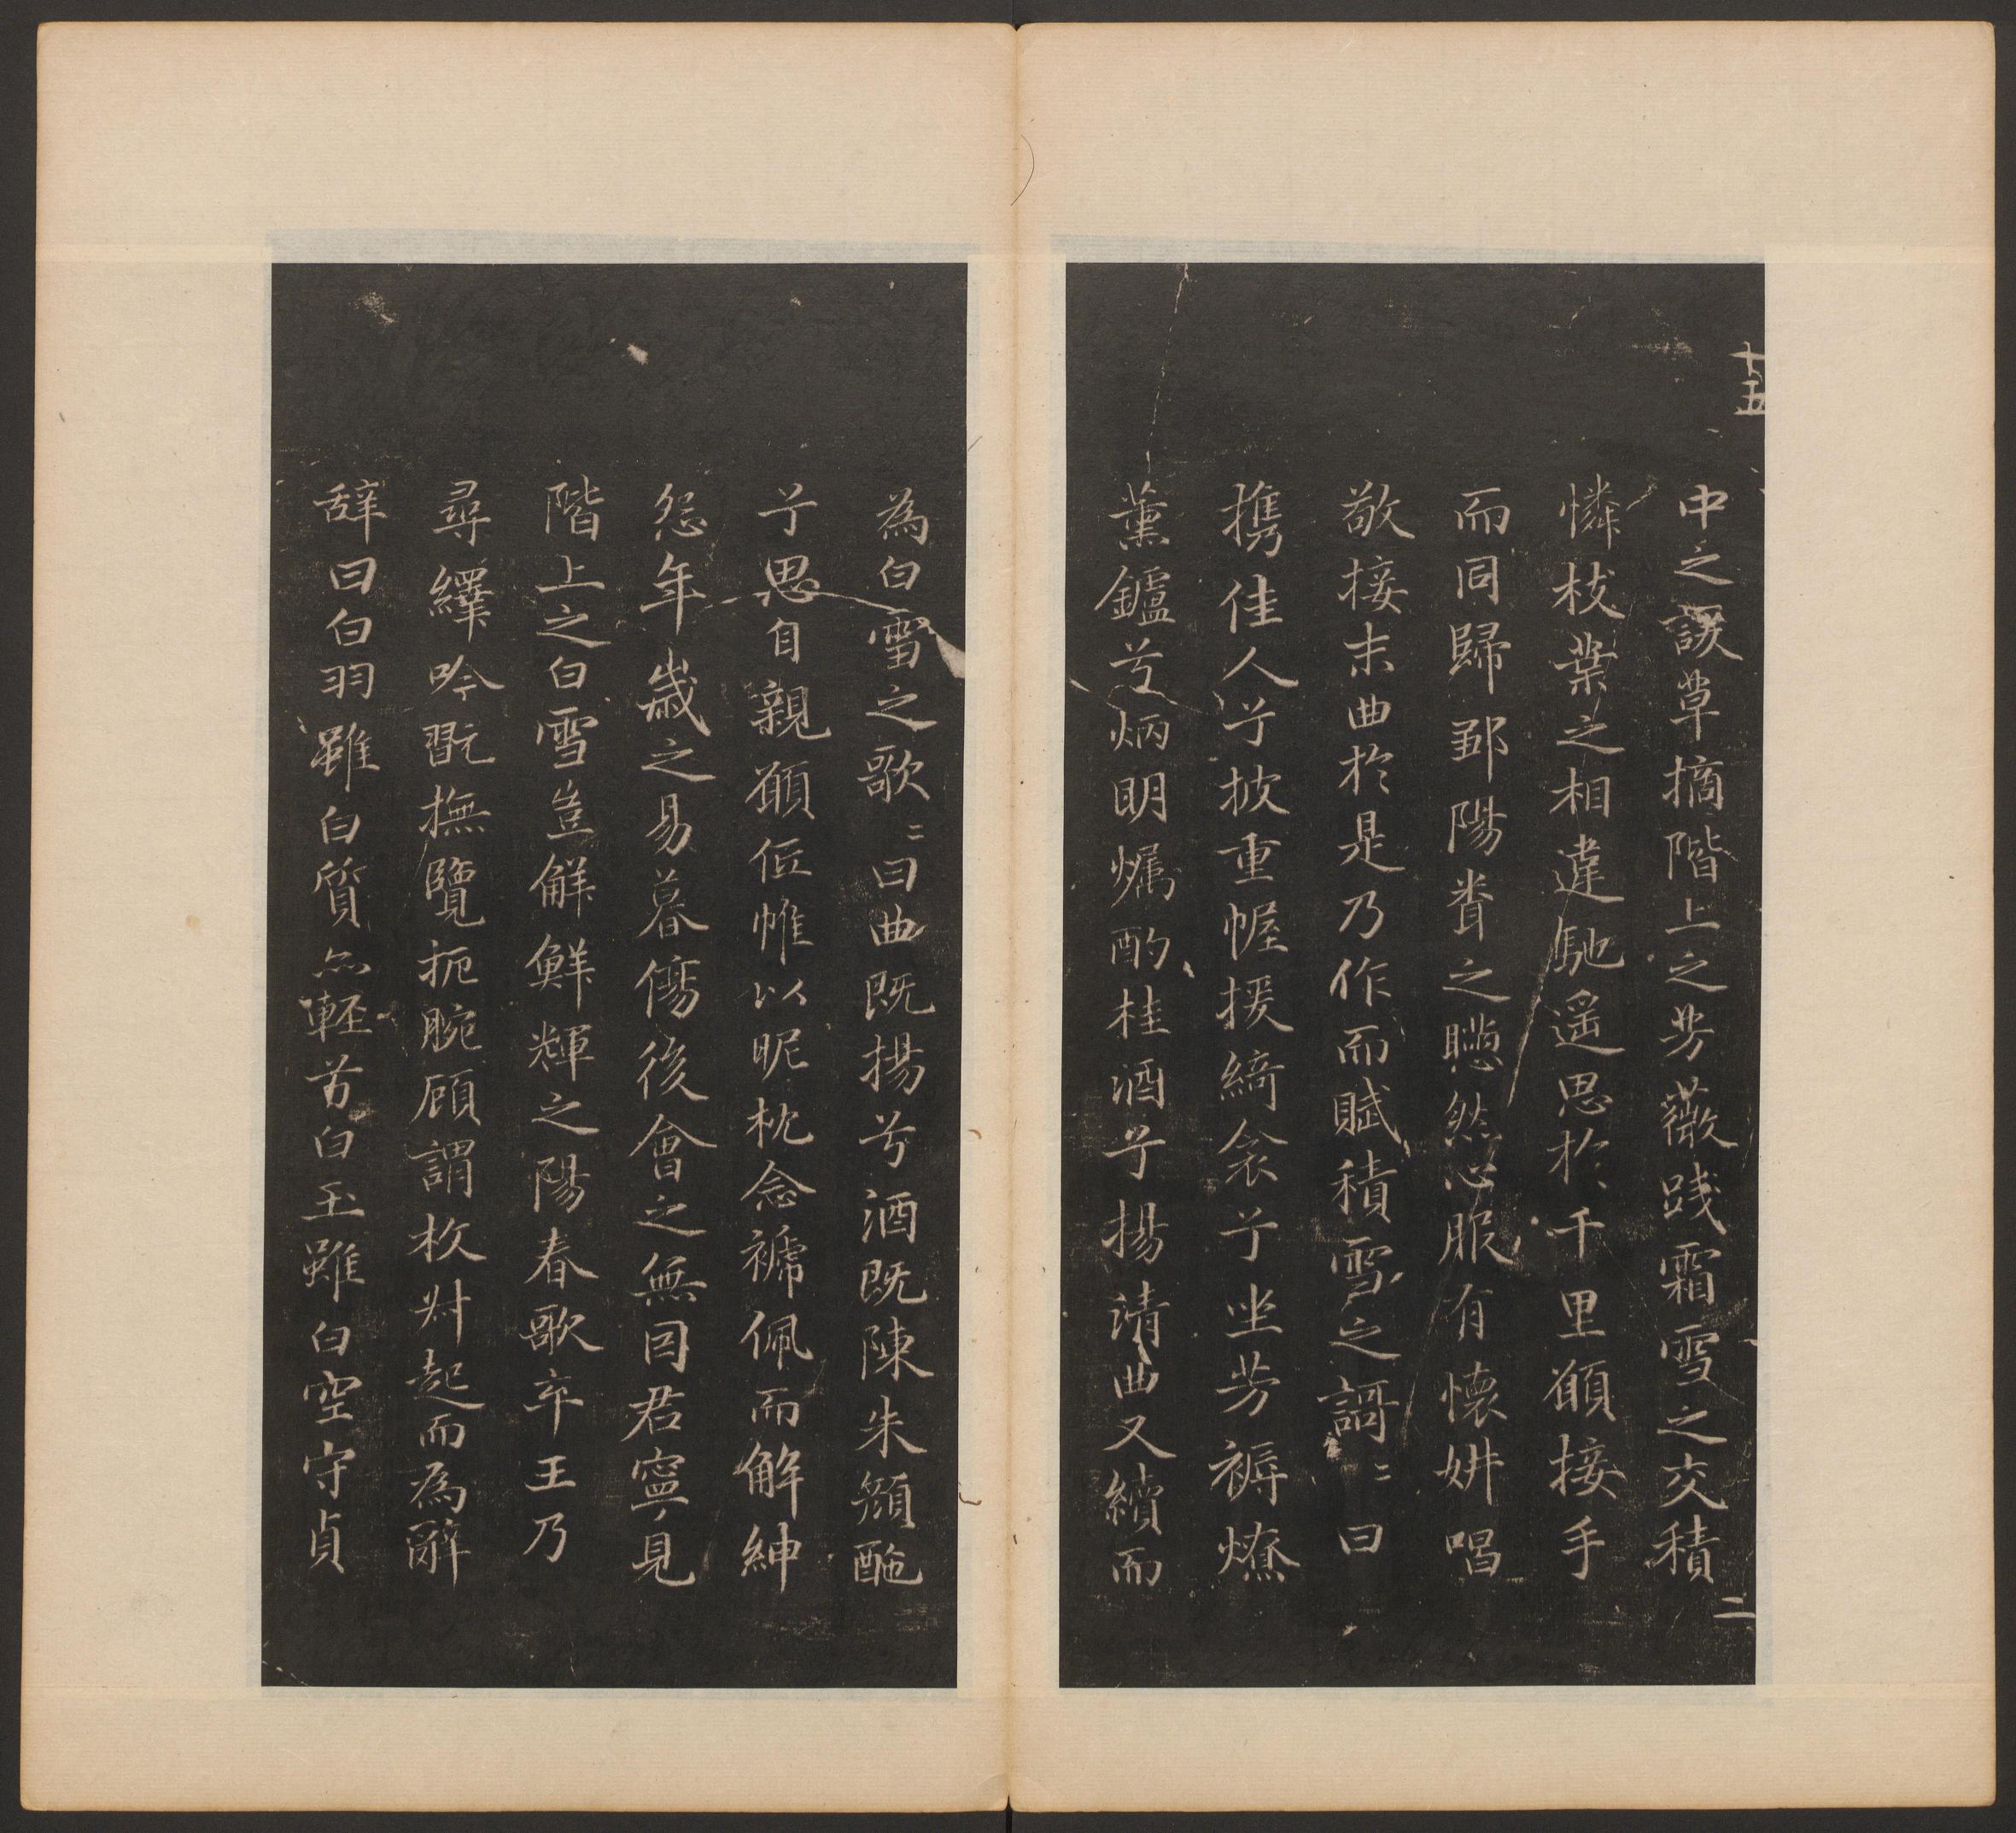 十五
中之諼草摘階上之芳薇踐霜雪之交積
憐枝葉之相違馳遥思於千里願接手
而同歸鄒陽眷之懣然心服有懷妍唱
敬接末曲於是乃作而賦積雪之謌〻曰
携佳人兮披重幄援綺衾兮坐芳褥燎
薰鑪兮炳明爥酌桂酒兮揚清曲又續而
二
為白雪之歌〻曰曲既揚兮酒既陳朱顏酡
兮思自親願低帷以昵枕念褫佩而解紳
怨年歲之易暮傷後會之無因君寧見
階上之白雪豈鮮鮮輝之陽春歌卒王乃
尋繹吟翫撫覽扼腕顧謂枚叔起而為辭
辞曰白羽雖白質以軽兮白玉雖白空守貞